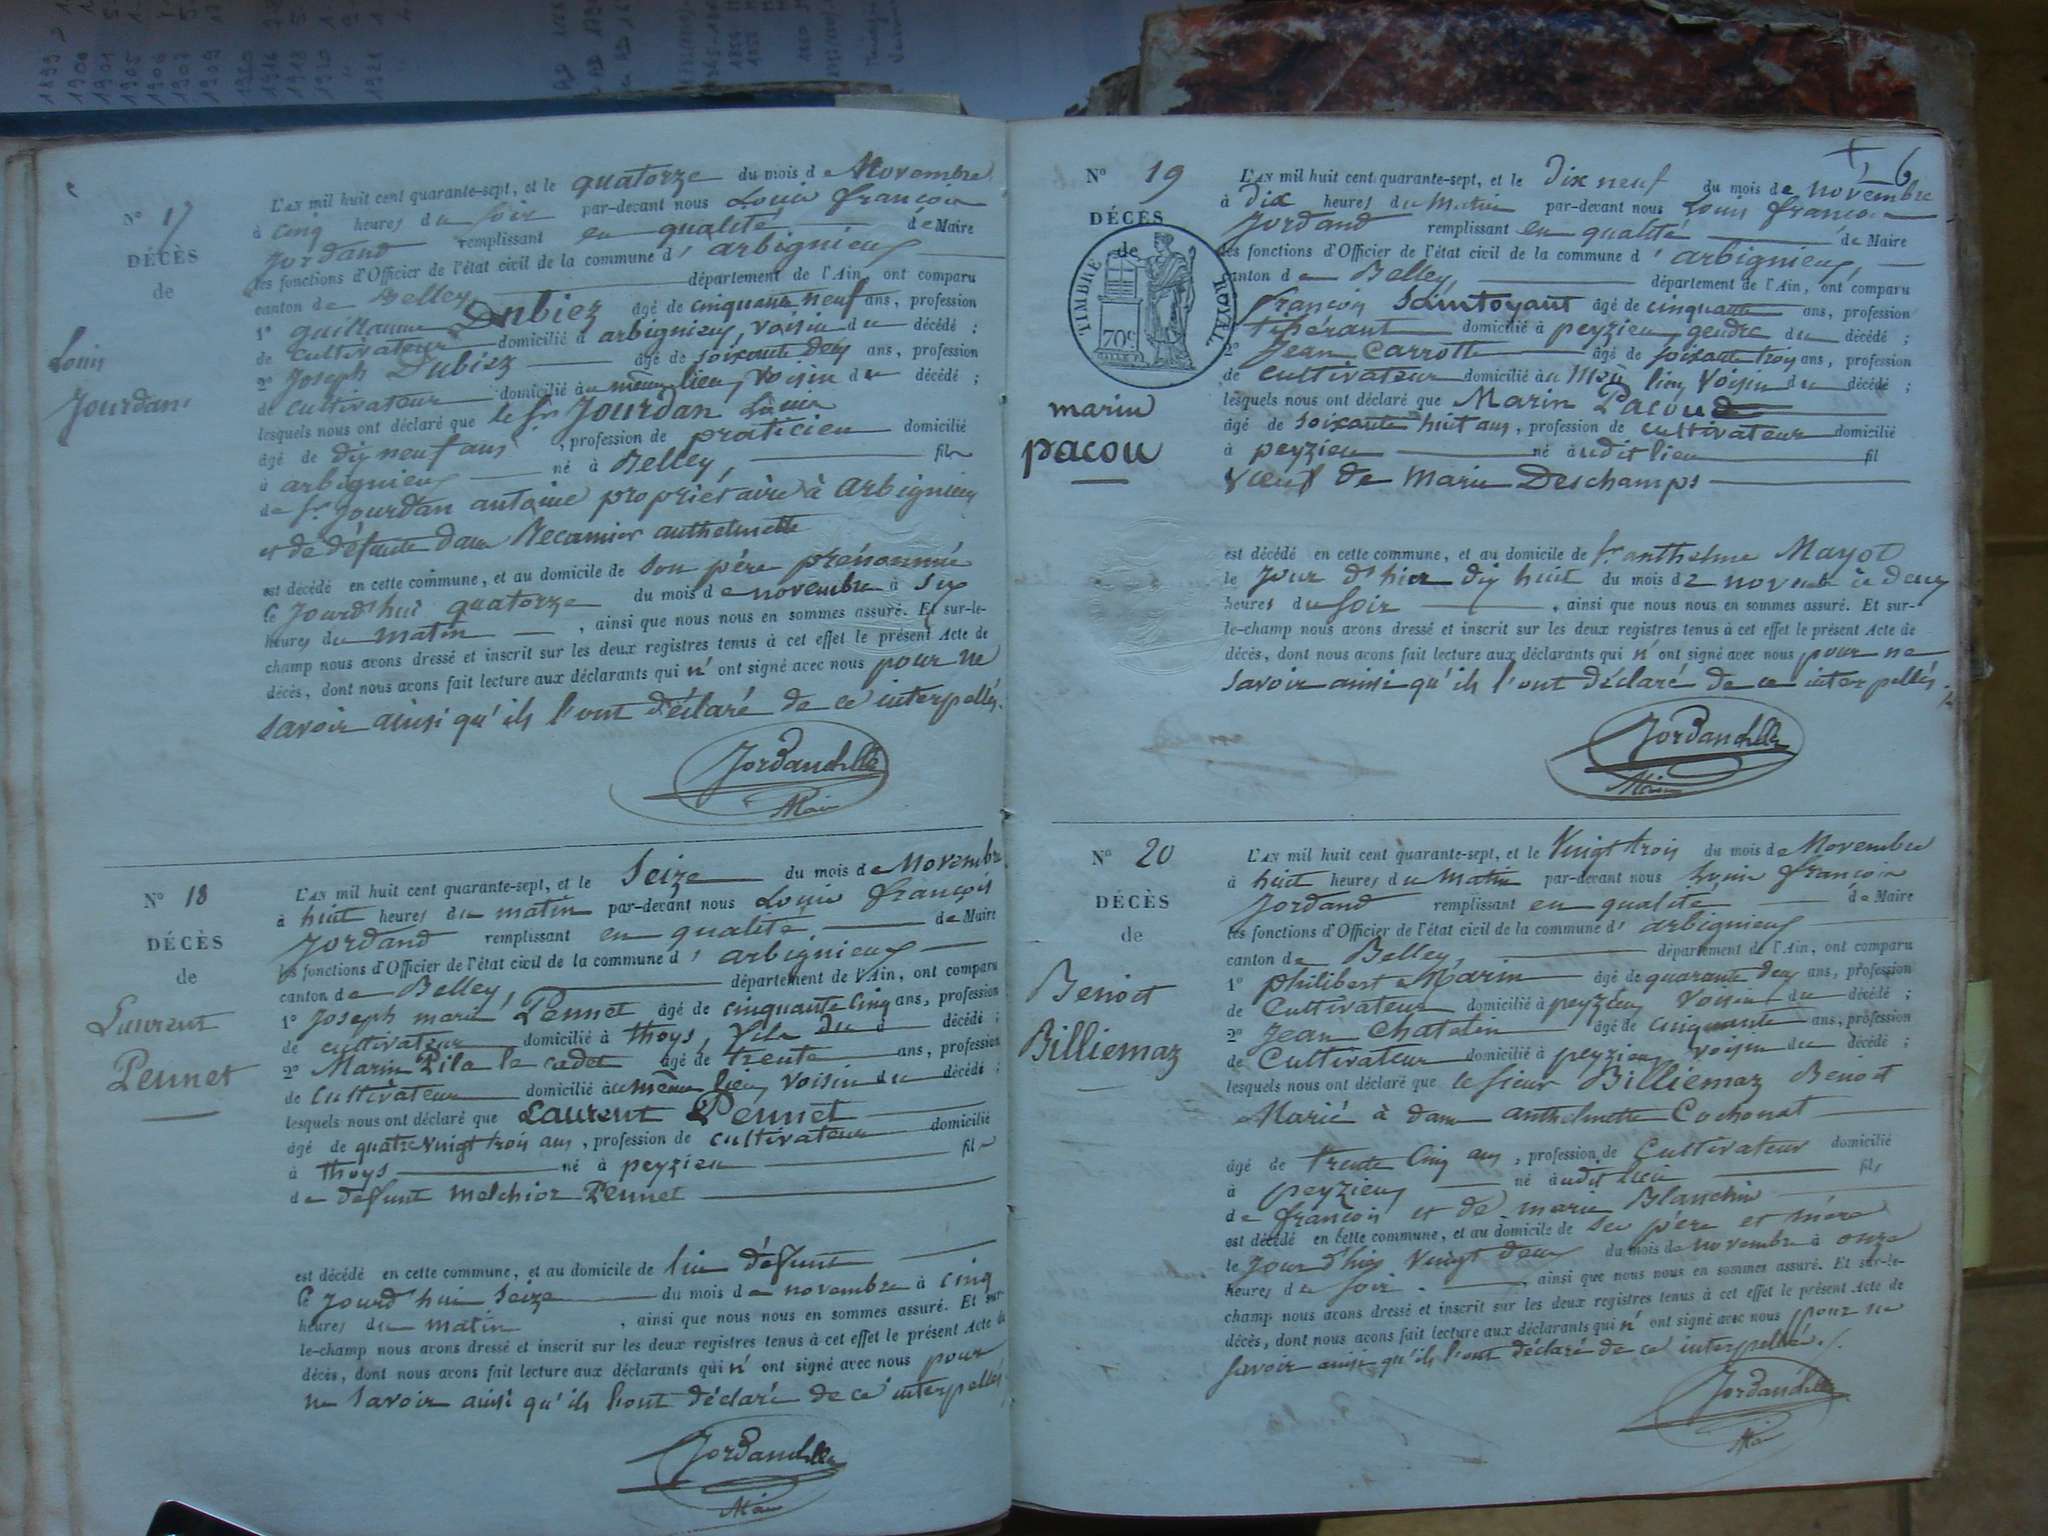 N° 17
DÉCÈS
de
Louis
Jourdan
L'AN mil huit cent quarante-sept, et le quatorze du mois de Novembre
à cinq heures du soir par-devant nous Louis françois
Jordand remplissant en qualité de Maire
les fonctions d'Officier de l'état civil de la commune d'arbignieu
canton de Belley département de l'Ain, ont comparu
1° guillaume Dubiez âgé de cinquante neuf ans, profession
de cultivateur domicilié à arbignieu, voisin du décédé ;
2° Joseph Dubiez âgé de soixante deux ans, profession
de cultivateur domicilié au même lieu, voisin du décédé ;
lesquels nous ont déclaré que le sr Jourdan Louis
âgé de dix neuf ans, profession de praticien domicilié
à arbignieu né à Belley, fils
de sr Jourdan antoine propriétaire à arbignieu
et de défunte dame Recamier anthelmette
est décédé en cette commune, et au domicile de son père prénommé
le jourd'hui quatorze du mois de novembre à six
heures du matin, ainsi que nous nous en sommes assuré. Et sur-le-
champ nous avons dressé et inscrit sur les deux registres tenus à cet effet le présent Acte de
décès, dont nous avons fait lecture aux déclarants qui n'ont signé avec nous pour ne
savoir ainsi qu'ils l'ont déclaré de ce interpellés.
Maire
N° 18
DÉCÈS
de
Laurent
Pennet
L'AN mil huit cent quarante-sept, et le Seize du mois de Novembre
à huit heures du matin par-devant nous Louis françois
Jordand remplissant en qualité de Maire
les fonctions d'Officier de l'état civil de la commune d'arbignieu
canton de Belley, département de l'Ain, ont comparu
1° Joseph marie Pennet âgé de cinquante cinq ans, profession
de cultivateur domicilié à thoys, fils du décédé ;
2° Marin Pila le cadet âgé de trente ans, profession
de cultivateur domicilié au même lieu, voisin du décédé ;
lesquels nous ont déclaré que Laurent Pennet
âgé de quatre vingt trois ans, profession de cultivateur domicilié
à thoys né à peyzieu fils
de defunt melchior Pennet
est décédé en cette commune, et au domicile de lui défunt
le jourd'hui seize du mois de novembre à cinq
heures du matin, ainsi que nous nous en sommes assuré. Et sur-
le-champ nous avons dressé et inscrit sur les deux registres tenus à cet effet le présent Acte de
décès, dont nous avons fait lecture aux déclarants qui n'ont signé avec nous pour
ne savoir ainsi qu'ils l'ont déclaré de ce interpellés
Maire
6
N° 19
DÉCÈS
de
TIMBRE ROYAL
70c
marin
pacou
L'AN mil huit cent quarante-sept, et le Dix neuf du mois de novembre
à Dix heures du matin par-devant nous Louis françois
Jordand remplissant en qualité de Maire
les fonctions d'Officier de l'état civil de la commune d'arbignieu
canton de Belley, département de l'Ain, ont comparu
françois Saintoyant âgé de cinquante ans, profession
tisserant domicilié à peyzieu, gendre du décédé ;
2° Jean Carrotte âgé de soixante trois ans, profession
de cultivateur domicilié au même lieu, voisin du décédé ;
lesquels nous ont déclaré que Marin Pacoud
âgé de soixante huit ans, profession de cultivateur domicilié
à peyzieu né àudit lieu fil
vœuf de marie Deschamps
est décédé en cette commune, et au domicile de sr anthelme Mayot
le jour d'hier dix huit du mois de novembre à deux
heures du soir, ainsi que nous nous en sommes assuré. Et sur-
le-champ nous avons dressé et inscrit sur les deux registres tenus à cet effet le présent Acte de
décès, dont nous avons fait lecture aux déclarants qui n'ont signé avec nous pour ne
savoir ainsi qu'ils l'ont déclaré de ce interpellés
Maire
N° 20
DÉCÈS
de
Benoit
Billiemaz
L'AN mil huit cent quarante-sept, et le Vingt trois du mois de Novembre
à huit heures du matin par-devant nous Louis françois
Jordand remplissant en qualité de Maire
les fonctions d'Officier de l'état civil de la commune d'arbignieu
canton de Belley, département de l'Ain, ont comparu
1° philibert Marin âgé de quarante deux ans, profession
de Cultivateur domicilié à peyzieu, voisin du décédé ;
2° Jean Chatelin âgé de cinquante ans, profession
de Cultivateur domicilié à peyzieu, voisin du décédé ;
lesquels nous ont déclaré que le sieur Billiemaz Benoit
Marié à dame anthelmette Cochonat
âgé de trente cinq ans, profession de Cultivateur domicilié
à peyzieu né àudit lieu fils
de françois et de marie Blanchin
est décédé en cette commune, et au domicile de ses père et mère
le jour d'hier vingt deux du mois de novembre à onze
heures du soir, ainsi que nous nous en sommes assuré. Et sur-le-
champ nous avons dressé et inscrit sur les deux registres tenus à cet effet le présent Acte de
décès, dont nous avons fait lecture aux déclarants qui n'ont signé avec nous pour ne
savoir ainsi qu'ils l'ont déclaré de ce interpellé.
Maire